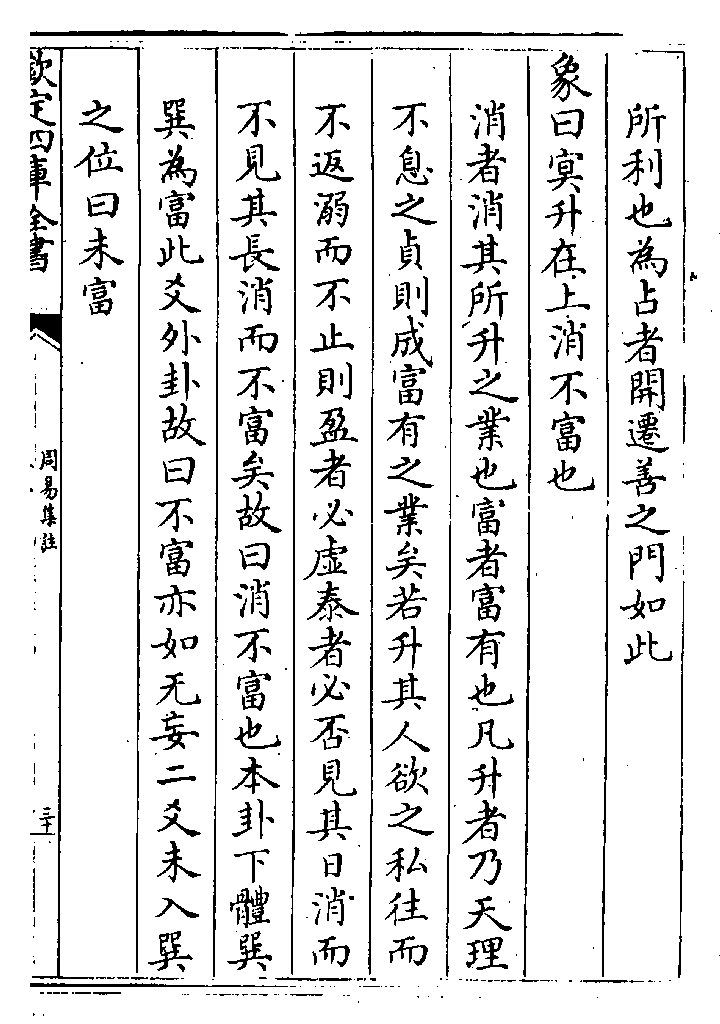 所利也為占者開遷善之門如此
象曰冥升在上消不富也
消者消其所升之業也富者富有也凡升者乃天理
不息之貞則成富有之業矣若升其人欲之私往而
不返溺而不止則盈者必虛泰者必否見其日消而
不見其長消而不富矣故曰消不富也本卦下體巽
巽為富此爻外卦故曰不富亦如无妄二爻未入巽
之位曰未富
欽定四庫全書
周易集註
三十